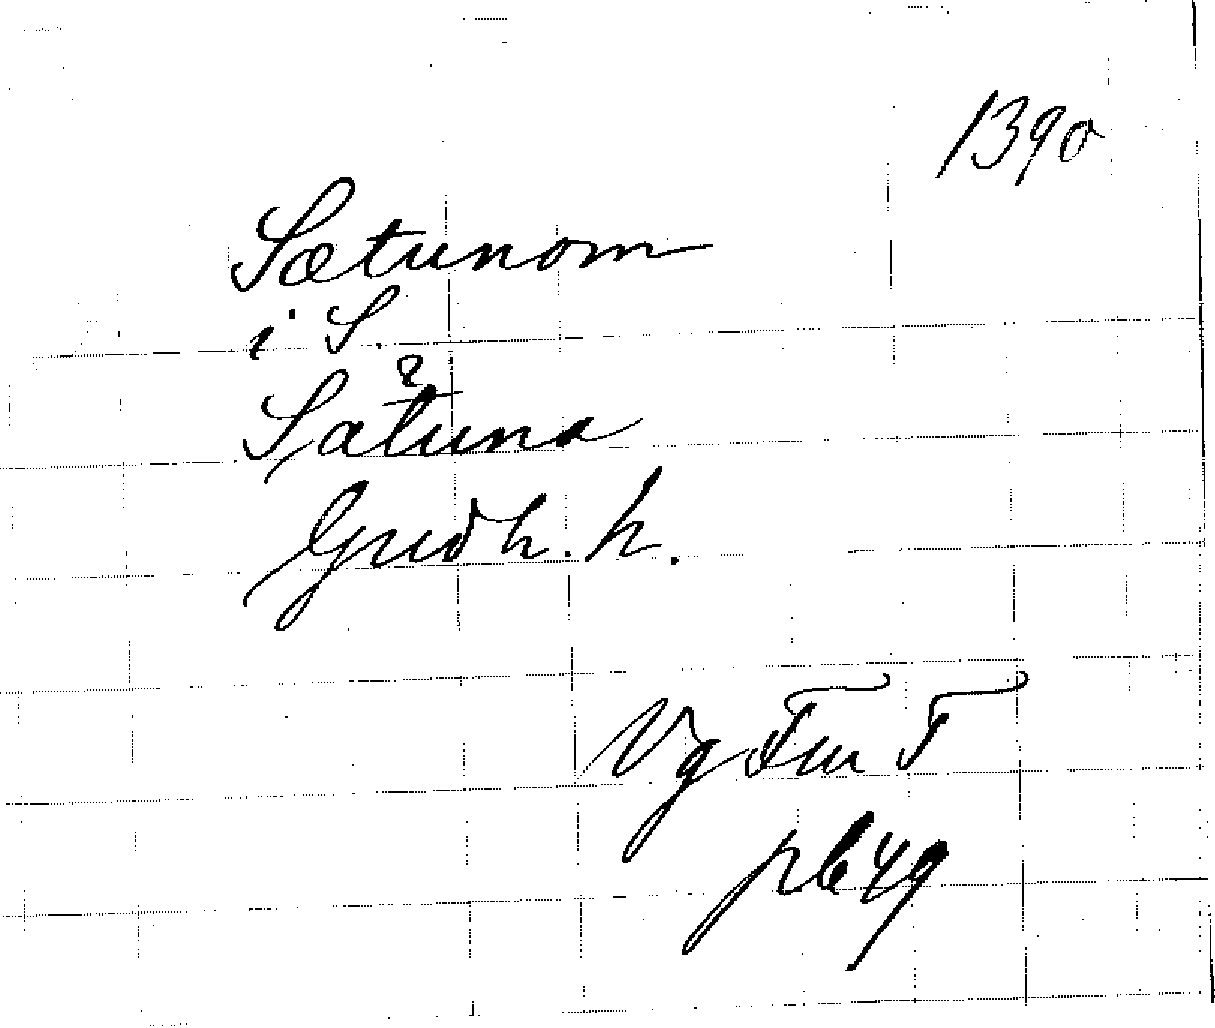 1390
Sætunom
i S.
?
Sätuna
Gudh. h.
Vg FmT
p 649